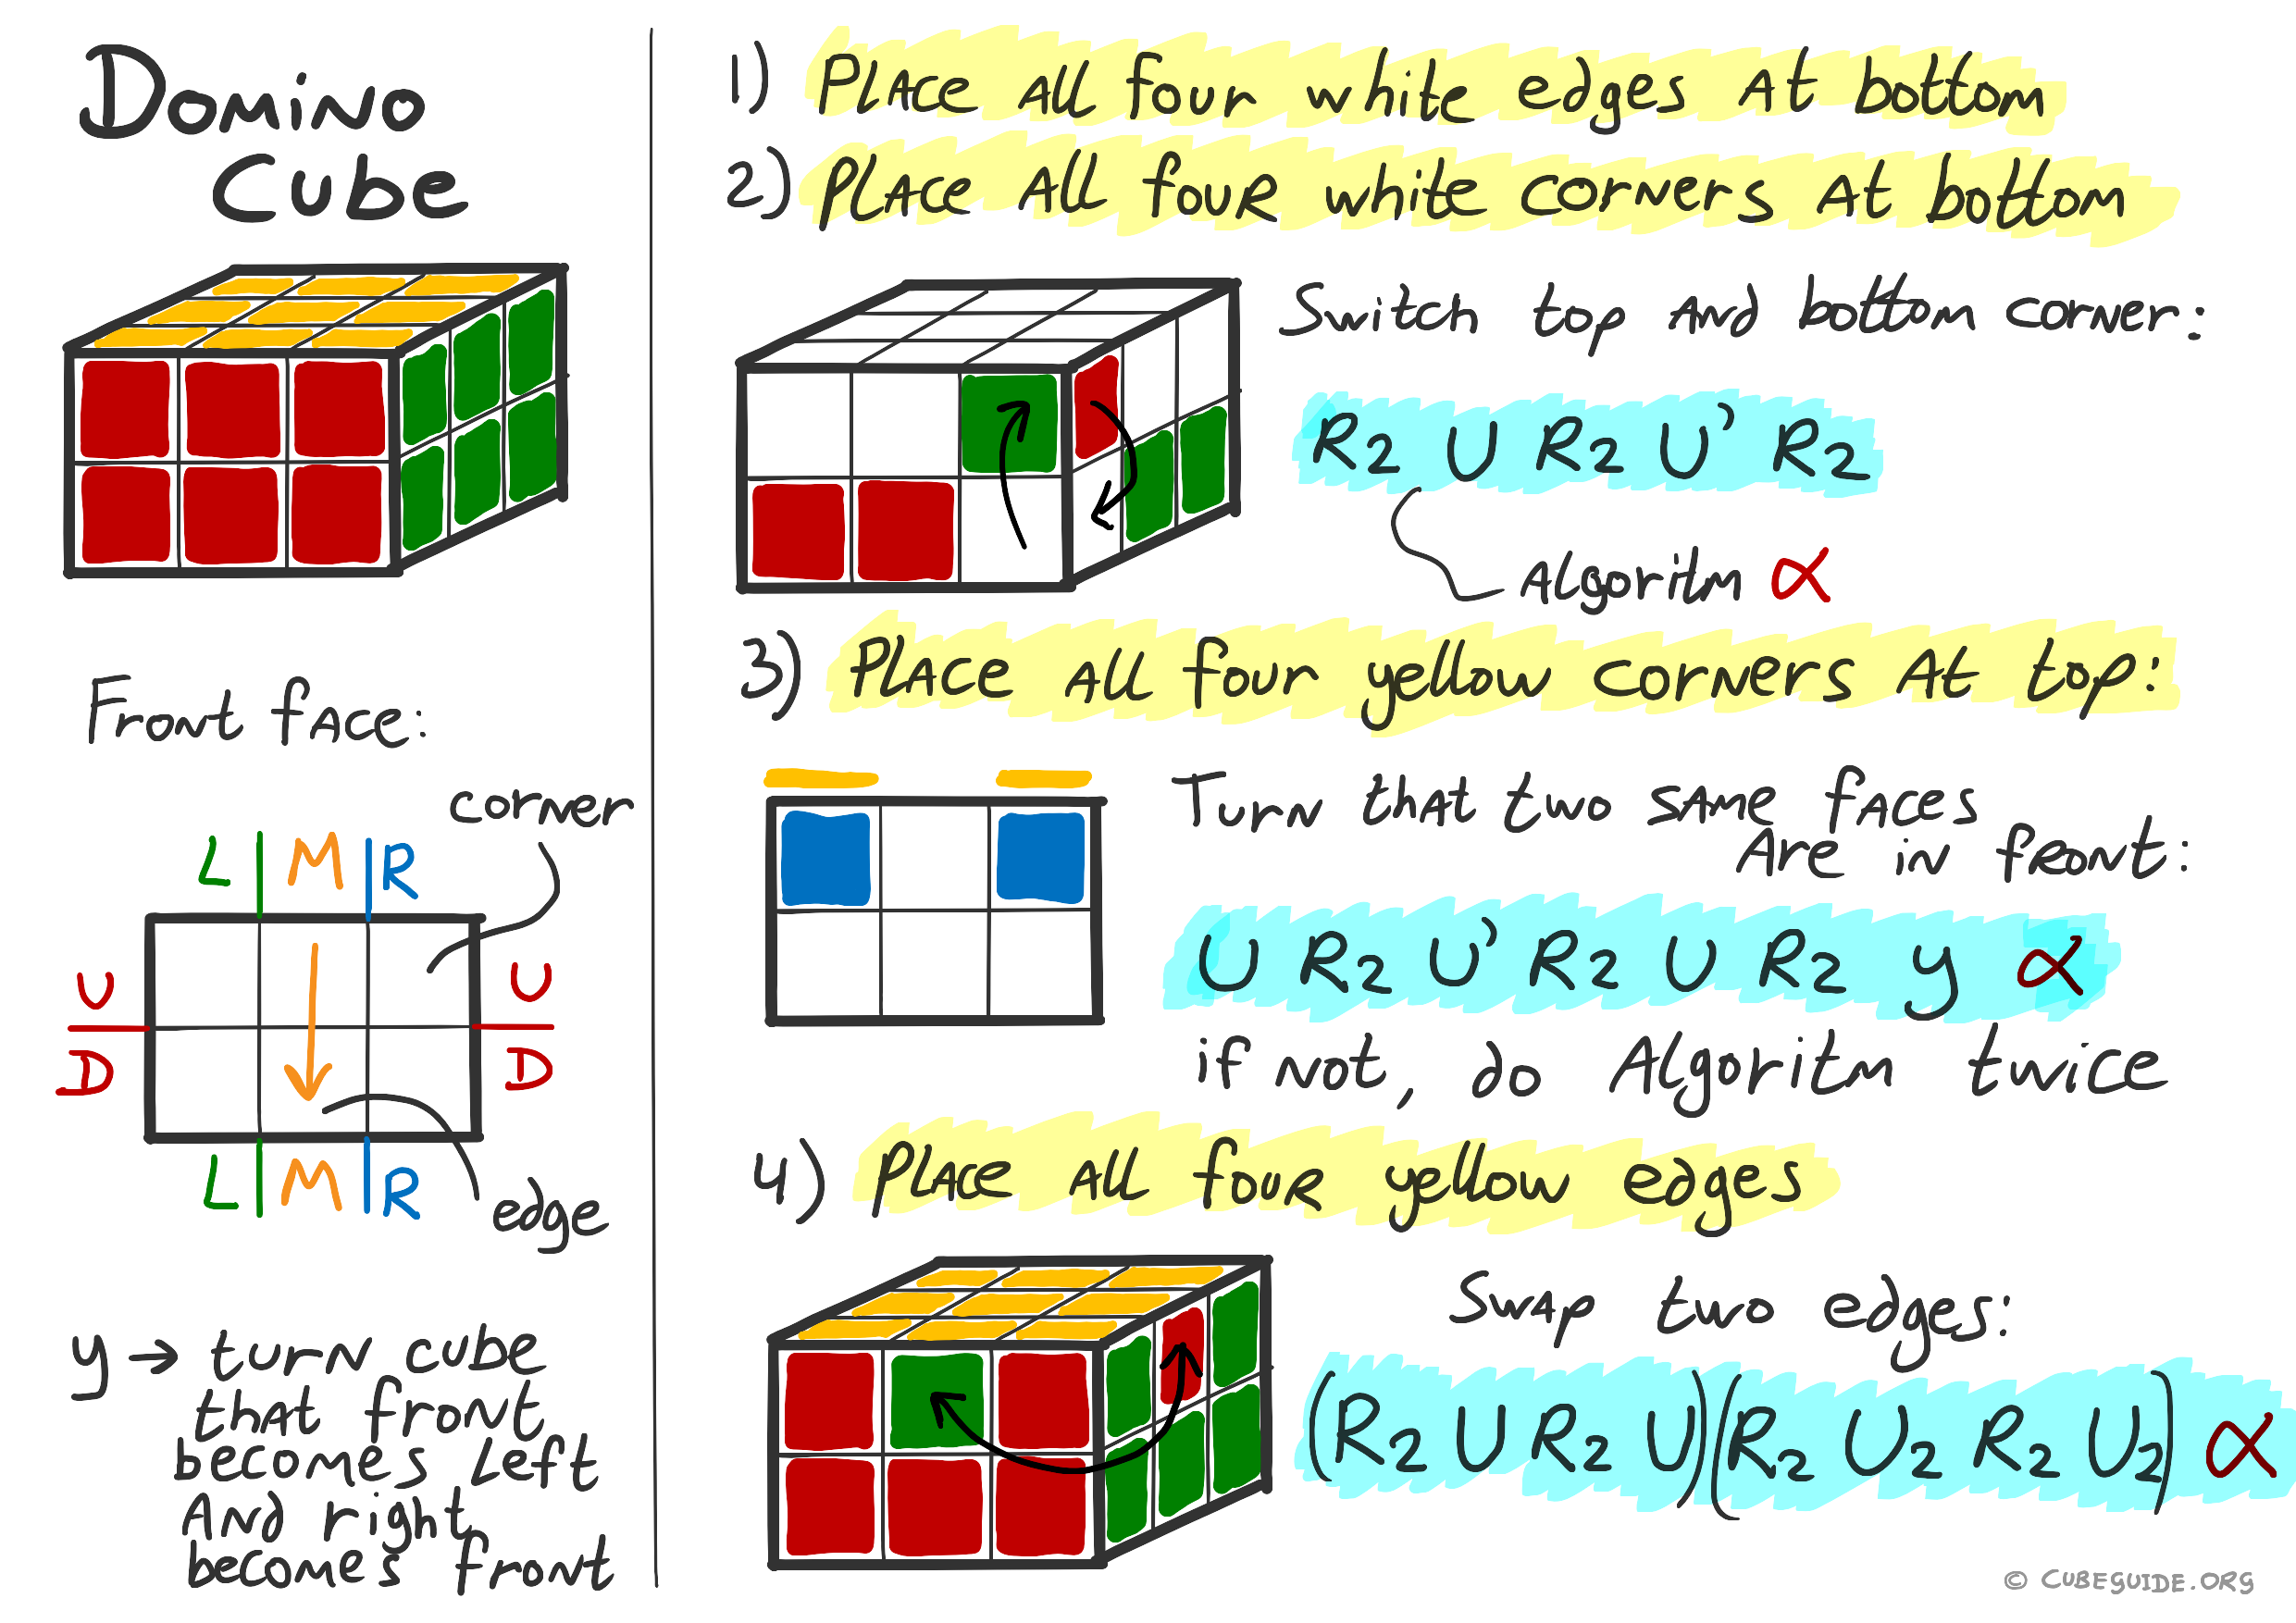 Domino
Cube
Front face:
corner
L M R
U U
D D
L M R
edge
y → turn cube
that front
becomes left
And right
becomes front
1) Place All four white edges At bottom
2) Place All four white corners At bottom
Switch top And bottom corner:
R2 U R2 U' R2
Algoritm α
3) Place All four yellow corners At top:
Turn that two same faces
Are in front:
U R2 U' R2 U R2 y α
if not, do Algoritm twice
4) Place All four yellow edges
Swap two edges:
(R2 U R2 U)(R2 U2 R2 U2) α
© CUBEGUIDE.ORG